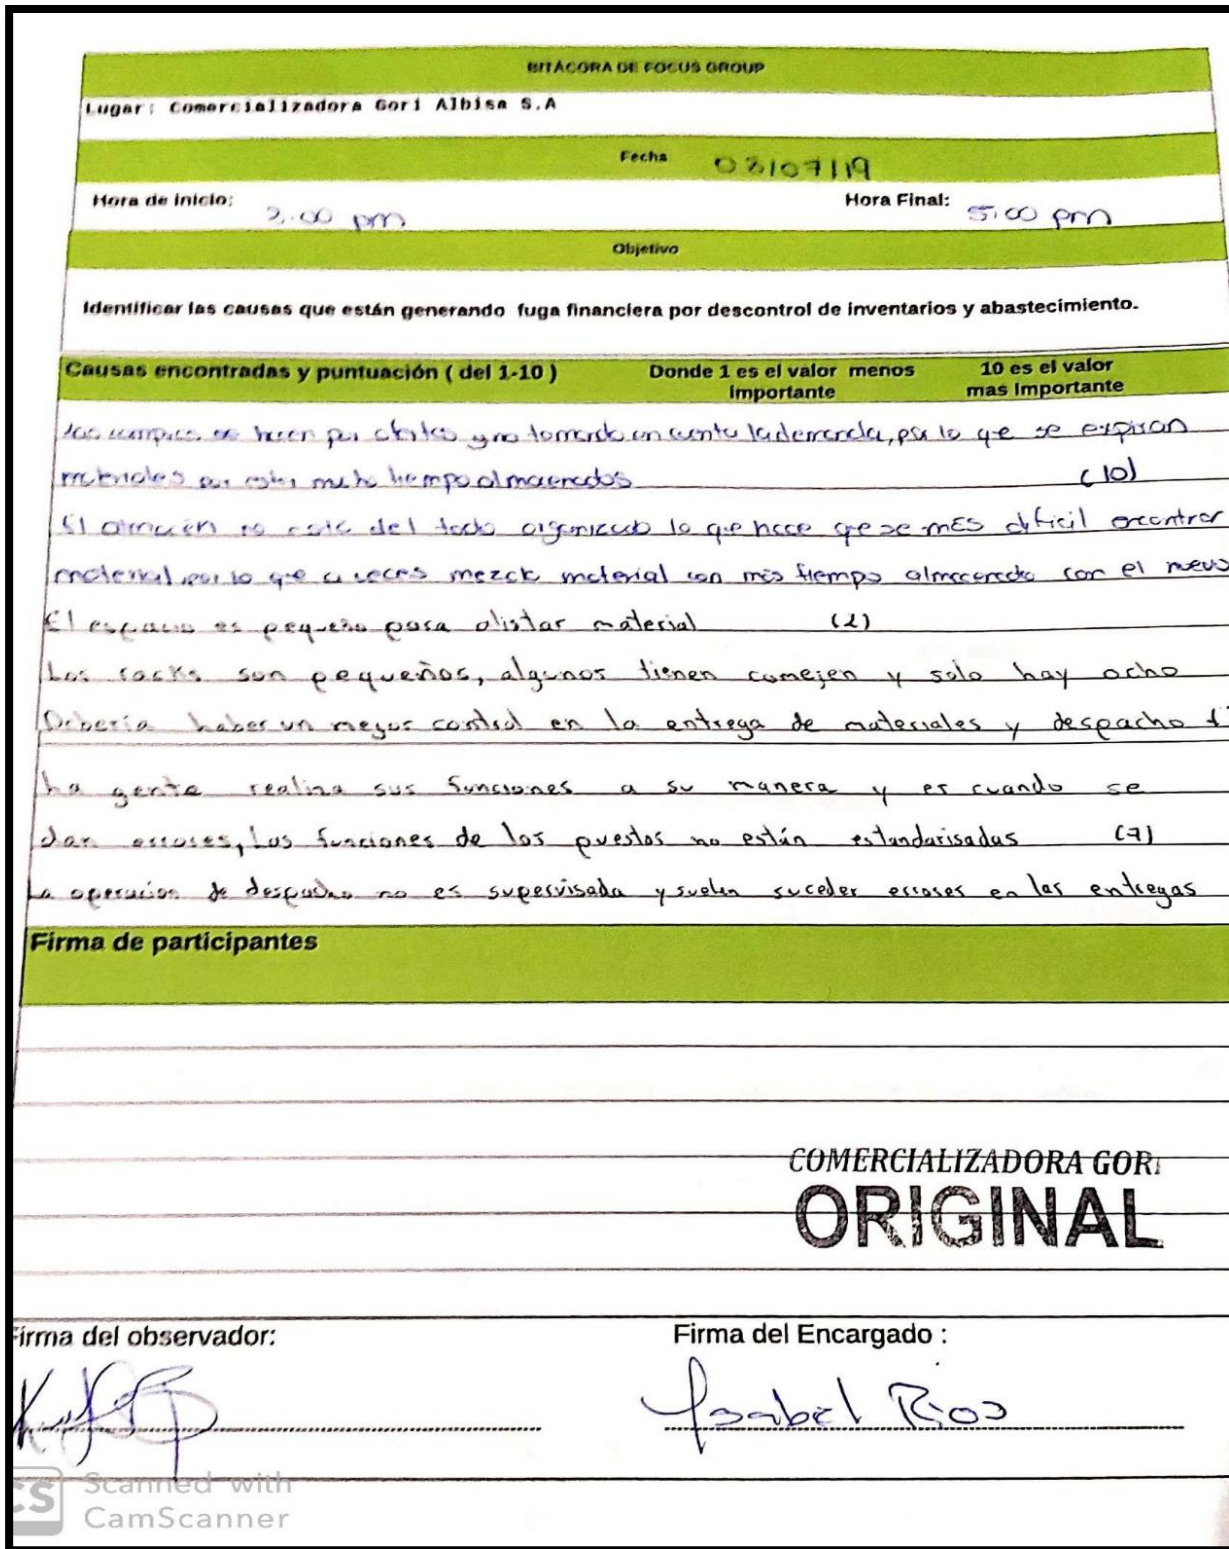 BITÁCORA DE FOCUS GROUP
Lugar: Comercializadora Gori Albisa S.A
Fecha 03/07/19
Hora de inicio: 2:00 pm Hora Final: 5:00 pm
Objetivo
Identificar las causas que están generando fuga financiera por descontrol de inventarios y abastecimiento.
Causas encontradas y puntuación ( del 1-10 ) Donde 1 es el valor menos importante 10 es el valor mas Importante
Las compras se hacen por y no tomando en cuenta la demanda, por lo que se expiran
materiales por estar mucho tiempo almacenados (10)
El almacén no está del todo organizado lo que hace que se más dificil encontrar
material, por lo que a veces mezcla material con más tiempo almacenado con el nuevo
El espacio es pequeño para alistar material (2)
Los racks son pequeños, algunos tienen comejen y solo hay ocho
Debería haber un mejor control en la entrega de materiales y despacho
La gente realiza sus funciones a su manera y es cuando se
dan errores, Las funciones de los puestos no están estandarisadas (7)
La operación de despacho no es supervisada y suelen suceder errores en las entregas
Firma de participantes
COMERCIALIZADORA GORI
ORIGINAL
Firma del observador: Firma del Encargado :
Ysabel Rios
CS Scanned with
CamScanner